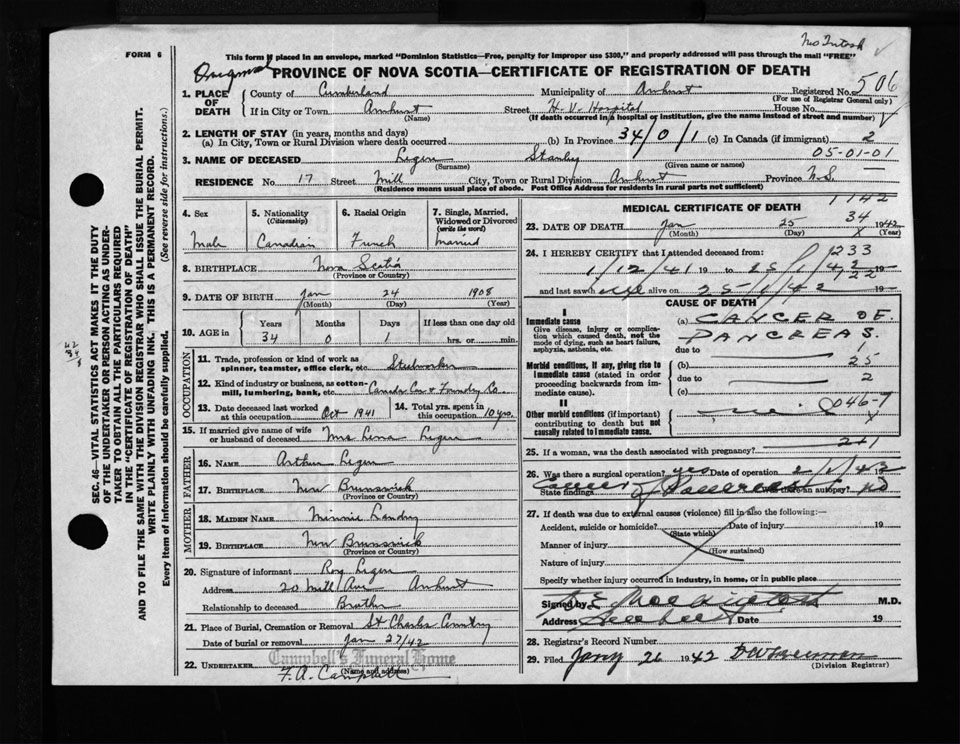 FORM 6
This form if placed in an envelope, marked "Dominion Statistics—Free, penalty for improper use $300," and properly addressed will pass through the mail "FREE"
McIntosh
Original PROVINCE OF NOVA SCOTIA—CERTIFICATE OF REGISTRATION OF DEATH
1. PLACE OF DEATH County of Cumberland Municipality of Amherst Registered No. 506
(For use of Registrar General only)
If in City or Town Amherst Street H. V. Hospital House No.
(Name) (If death occurred in a hospital or institution, give the name instead of street and number)
2. LENGTH OF STAY (in years, months and days)
(a) In City, Town or Rural Division where death occurred (b) In Province 34/0/1 (c) In Canada (if immigrant) 2
05-01-01
3. NAME OF DECEASED Legere Stanley
(Surname) (Given name or names)
RESIDENCE No. 17 Street Mill City, Town or Rural Division Amherst Province N.S.
(Residence means usual place of abode. Post Office Address for residents in rural parts not sufficient)
4. Sex Male
5. Nationality (Citizenship) Canadian
6. Racial Origin French
7. Single, Married, Widowed or Divorced (write the word) Married
8. BIRTHPLACE Nova Scotia
(Province or Country)
9. DATE OF BIRTH Jan 24 1908
(Month) (Day) (Year)
10. AGE in Years Months Days If less than one day old
34 0 1 hrs. or min.
OCCUPATION
11. Trade, profession or kind of work as spinner, teamster, office clerk, etc. Steelworker
12. Kind of industry or business, as cotton-mill, lumbering, bank, etc. Canada Car & Foundry Co.
13. Date deceased last worked at this occupation Oct 1941
14. Total yrs. spent in this occupation 10 yrs.
15. If married give name of wife or husband of deceased Mrs Lena Legere
FATHER
16. NAME Arthur Legere
17. BIRTHPLACE New Brunswick
(Province or Country)
MOTHER
18. MAIDEN NAME Minnie Landry
19. BIRTHPLACE New Brunswick
(Province or Country)
20. Signature of informant Roy Legere
Address 20 Mill Ave Amherst
Relationship to deceased Brother
21. Place of Burial, Cremation or Removal St Charles Cemetery
Date of burial or removal Jan 27/42
Campbell's Funeral Home
22. UNDERTAKER F. A. Campbell
(Name and address)
1742
MEDICAL CERTIFICATE OF DEATH
34
23. DATE OF DEATH Jan 25 1942
(Month) (Day) (Year)
24. I HEREBY CERTIFY that I attended deceased from:
1233
1/12/41 19 to 25/1/42 19
and last saw him alive on 25-1/42 19
CAUSE OF DEATH
I
Immediate cause
Give disease, injury or complication which caused death, not the mode of dying, such as heart failure, asphyxia, asthenia, etc.
(a) CANCER OF PANCREAS.
due to 1
Morbid conditions, if any, giving rise to immediate cause (stated in order proceeding backwards from immediate cause).
(b) 25
due to 2
(c)
II
Other morbid conditions (if important) contributing to death but not causally related to immediate cause.
046-7
25. If a woman, was the death associated with pregnancy?
241
26. Was there a surgical operation? yes Date of operation 2/1/42
State findings Cancer of Pancreas Was there an autopsy? no
27. If death was due to external causes (violence) fill in also the following:—
Accident, suicide or homicide? Date of injury 19
(State which)
Manner of injury
(How sustained)
Nature of injury
Specify whether injury occurred in industry, in home, or in public place
Signed by M.D.
Address Amherst Date 19
28. Registrar's Record Number
29. Filed Jany 26 1942
(Division Registrar)
SEC. 46—VITAL STATISTICS ACT MAKES IT THE DUTY OF THE UNDERTAKER OR PERSON ACTING AS UNDERTAKER TO OBTAIN ALL THE PARTICULARS REQUIRED IN THE "CERTIFICATE OF REGISTRATION OF DEATH" AND TO FILE THE SAME WITH THE DIVISION REGISTRAR WHO SHALL ISSUE THE BURIAL PERMIT.
WRITE PLAINLY WITH UNFADING INK. THIS IS A PERMANENT RECORD.
Every item of information should be carefully supplied. (See reverse side for instructions.)